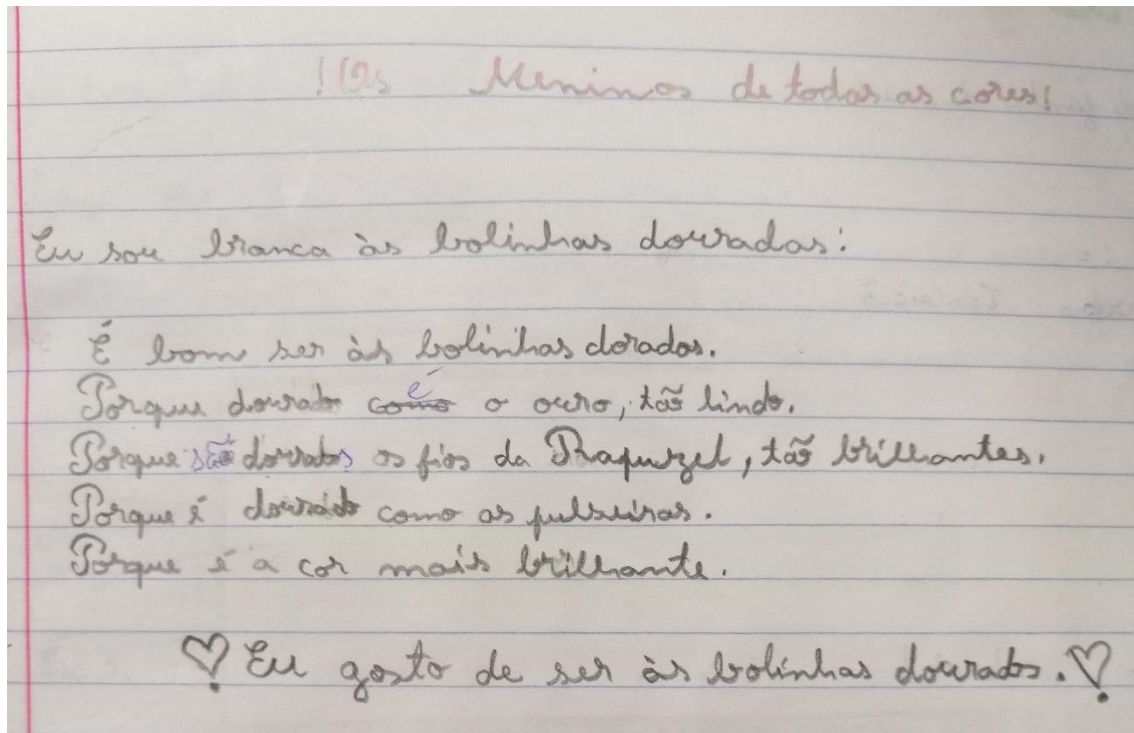 !Os Meninos de todas as cores!
Eu sou branca às bolinhas douradas:
É bom ser às bolinhas doradas.
Porque dourado é o ouro, tão lindo.
Porque são dourados os fios da Rapunzel, tão brilhantes.
Porque é dourado como as pulseiras.
Porque é a cor mais brilhante.
♡ Eu gosto de ser às bolinhas dourados. ♡